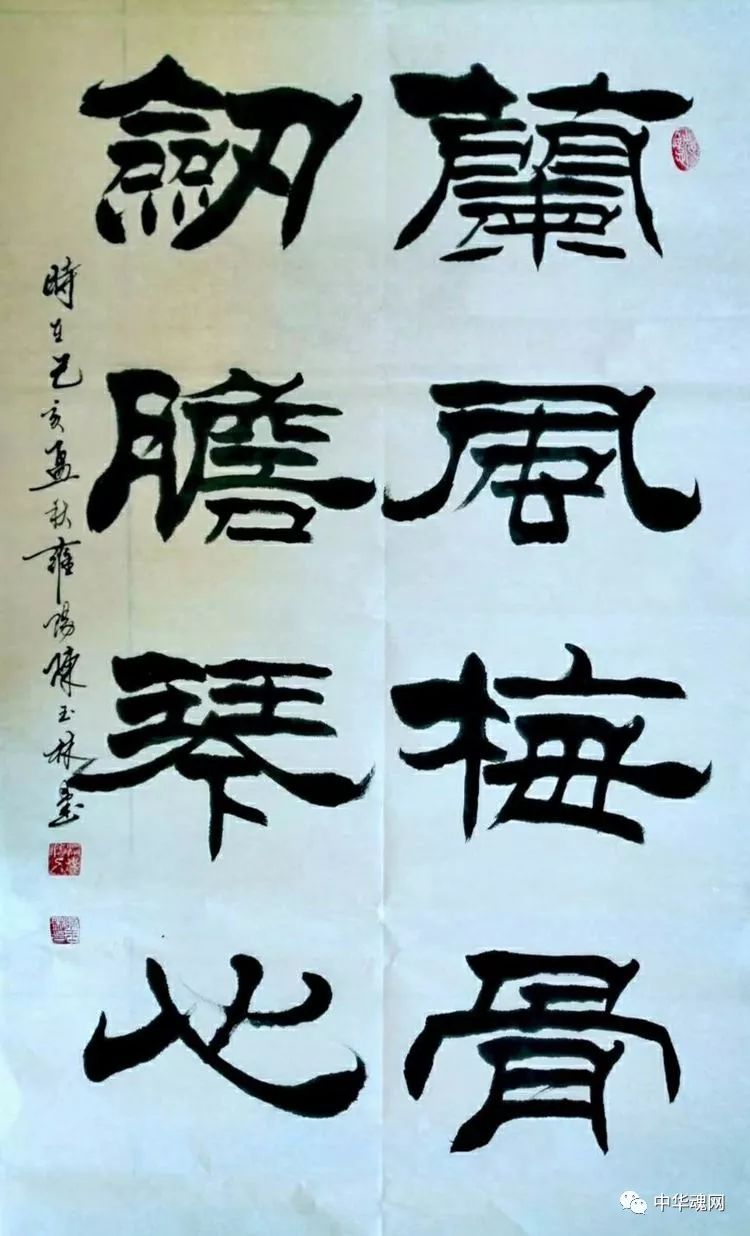 蘭風梅骨
劒膽琴心
時在己亥孟秋雍陽陳玉林書
中华魂网